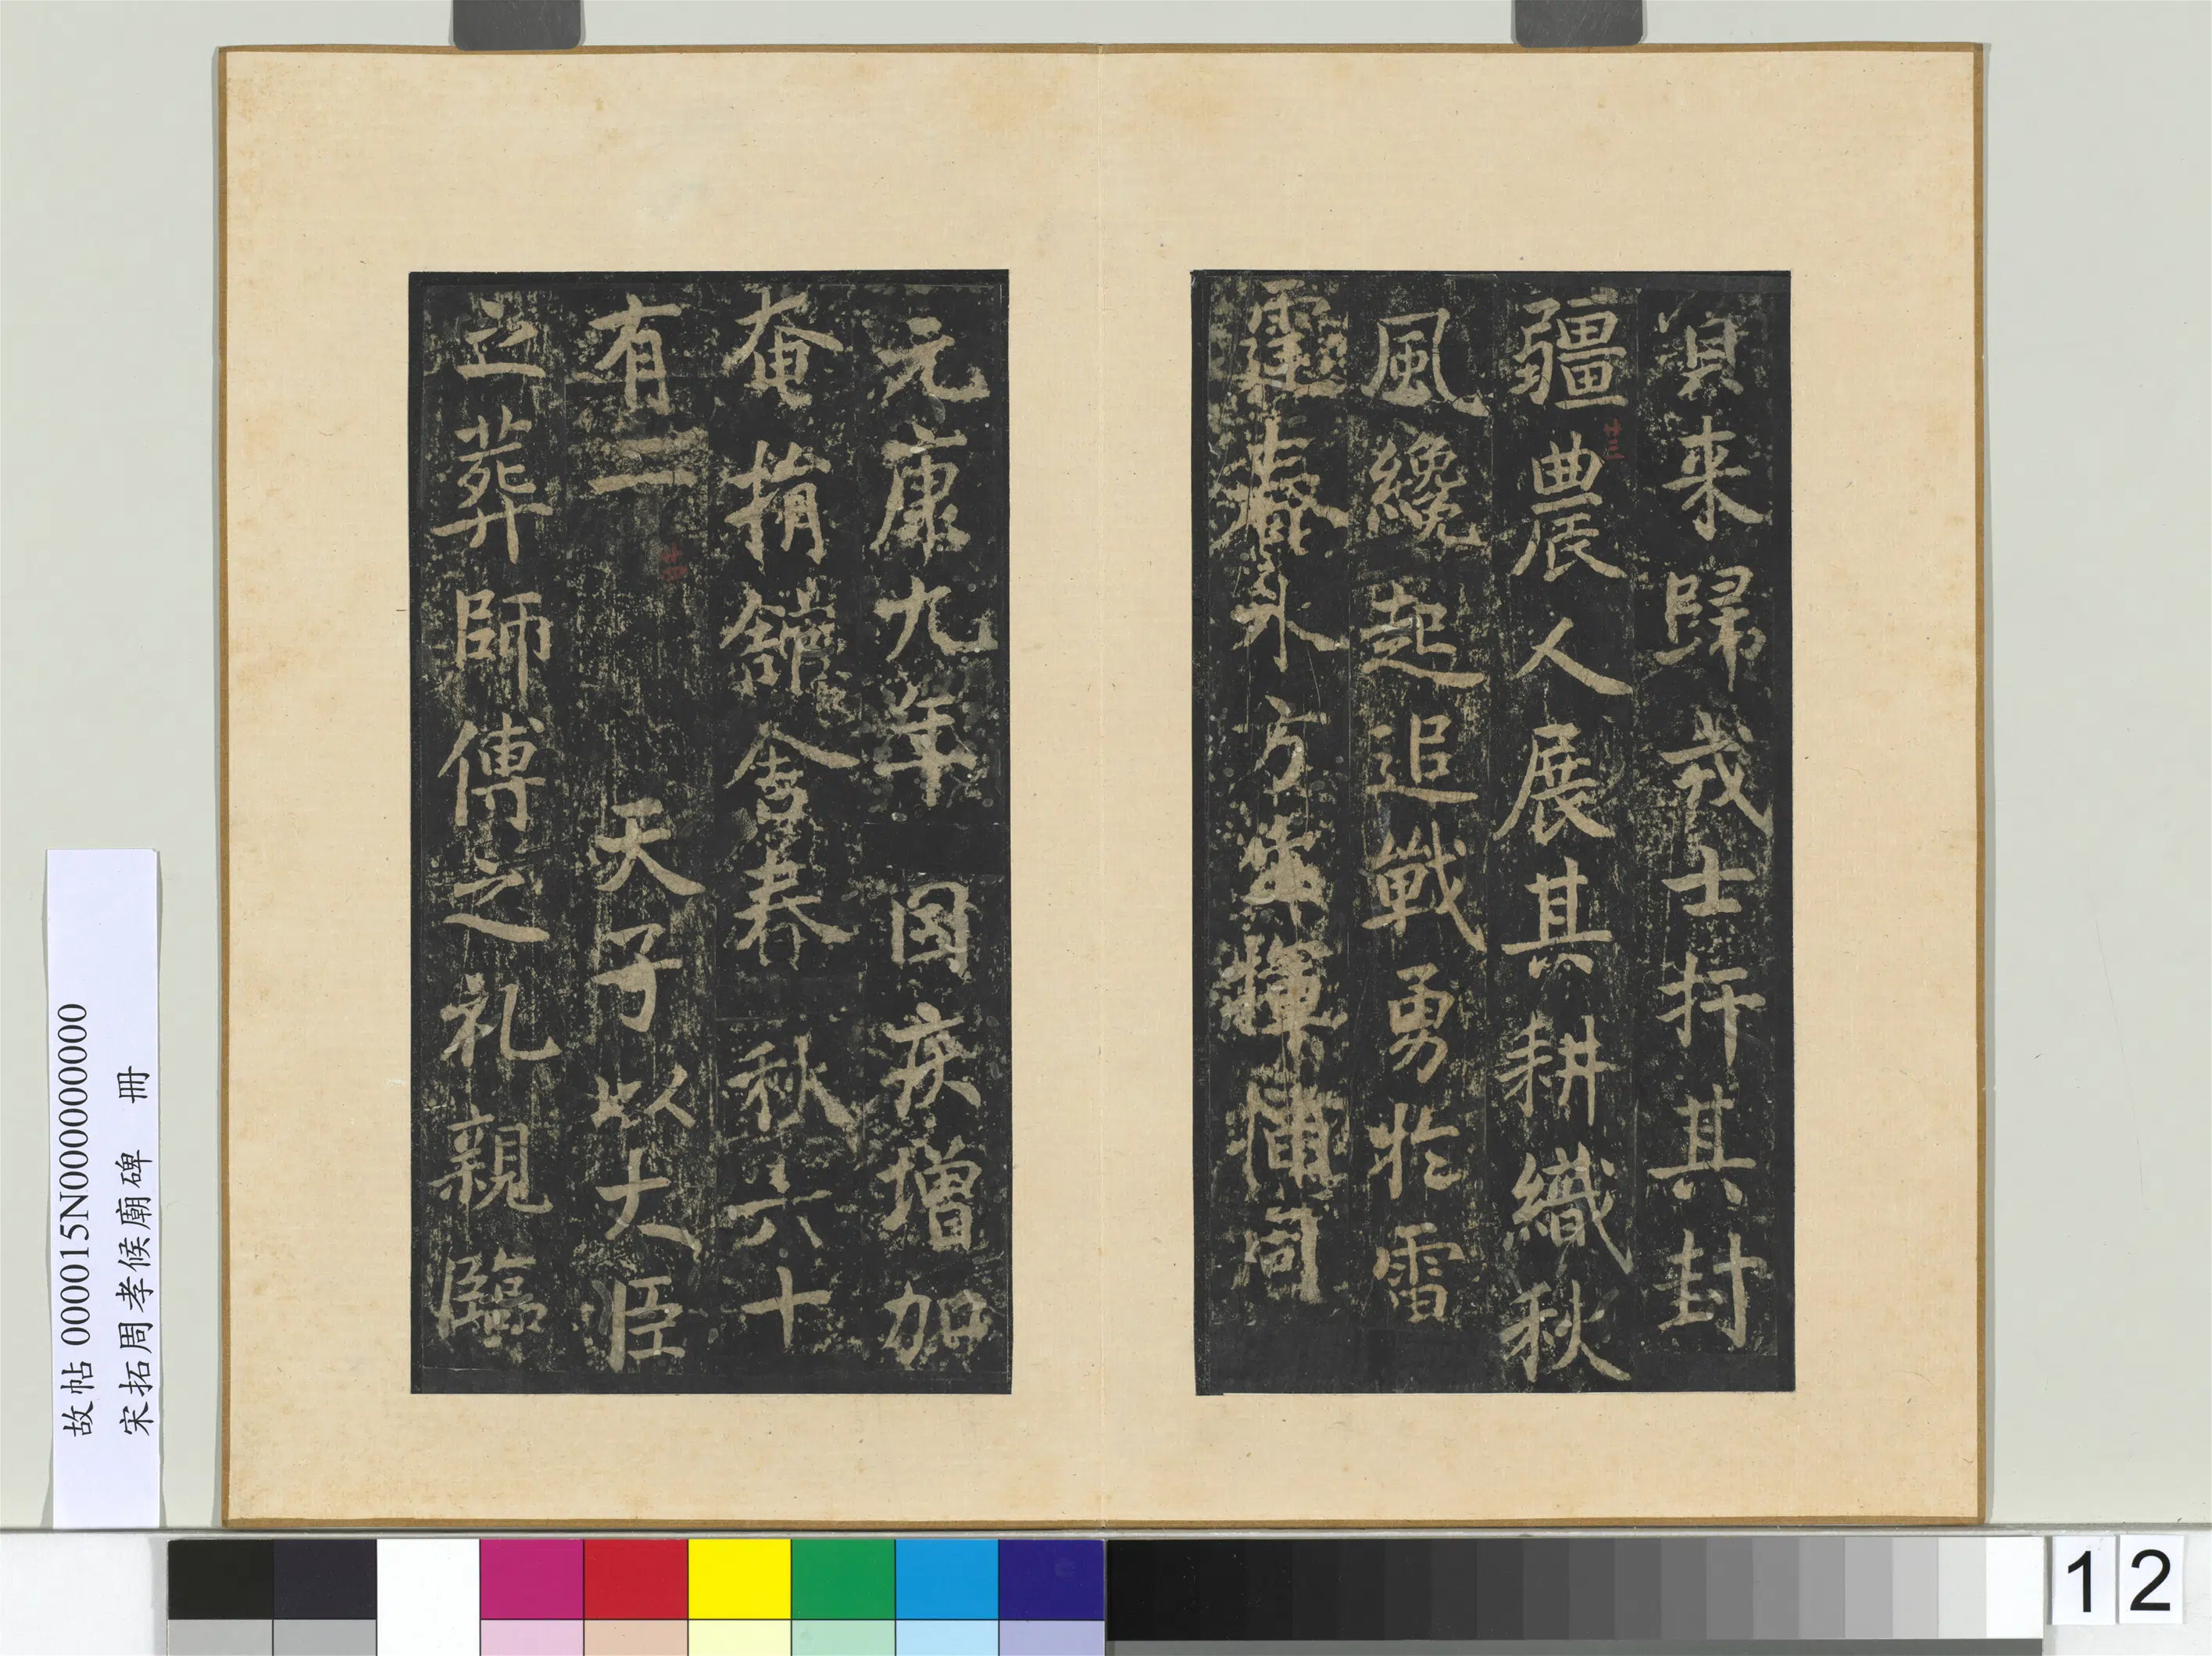 負来歸戎士扞其封
疆農人展其耕織秋
風纔起追戰勇於雷
霆春水方生揮
元康九年因疾增加
奄捐舘舍春秋六十
有二天子以大臣
之葬師傅之礼親臨
十三
故帖 000015N000000000
宋拓周孝候廟碑 冊
12